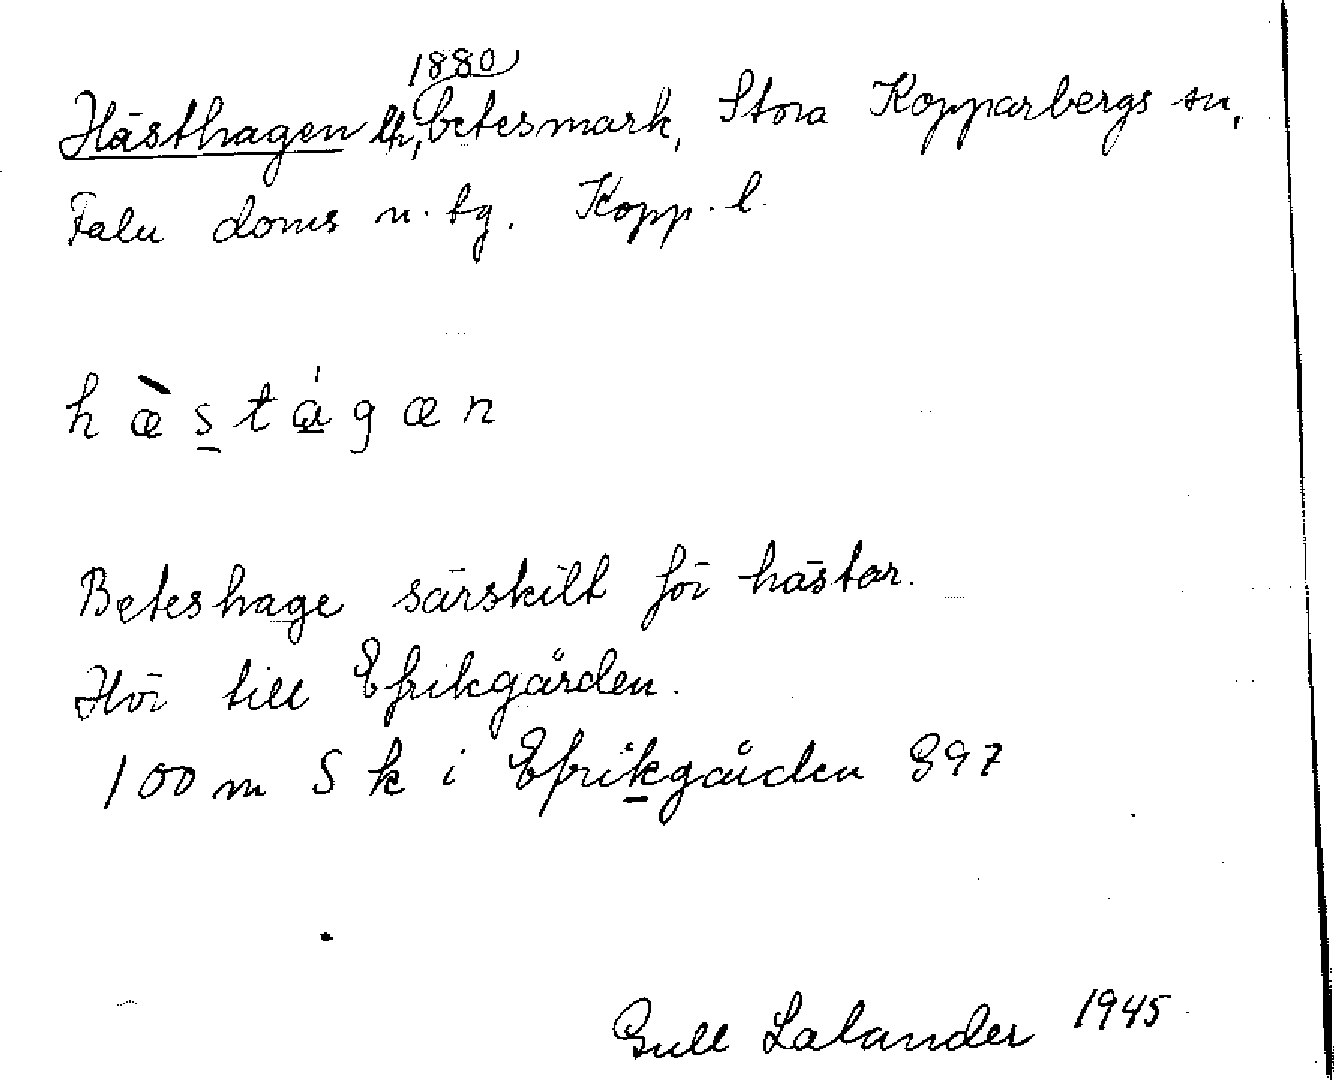 1880
Hästhagen lr, betesmark, Stora Kopparbergs sn,
Falu doms n. tg. Kopp. l.
h æ̀ s t á g æ n
Beteshage särskilt för hästar.
Hör till Efrikgården.
100 m S k i Efrikgården 897
Gull Lalander 1945